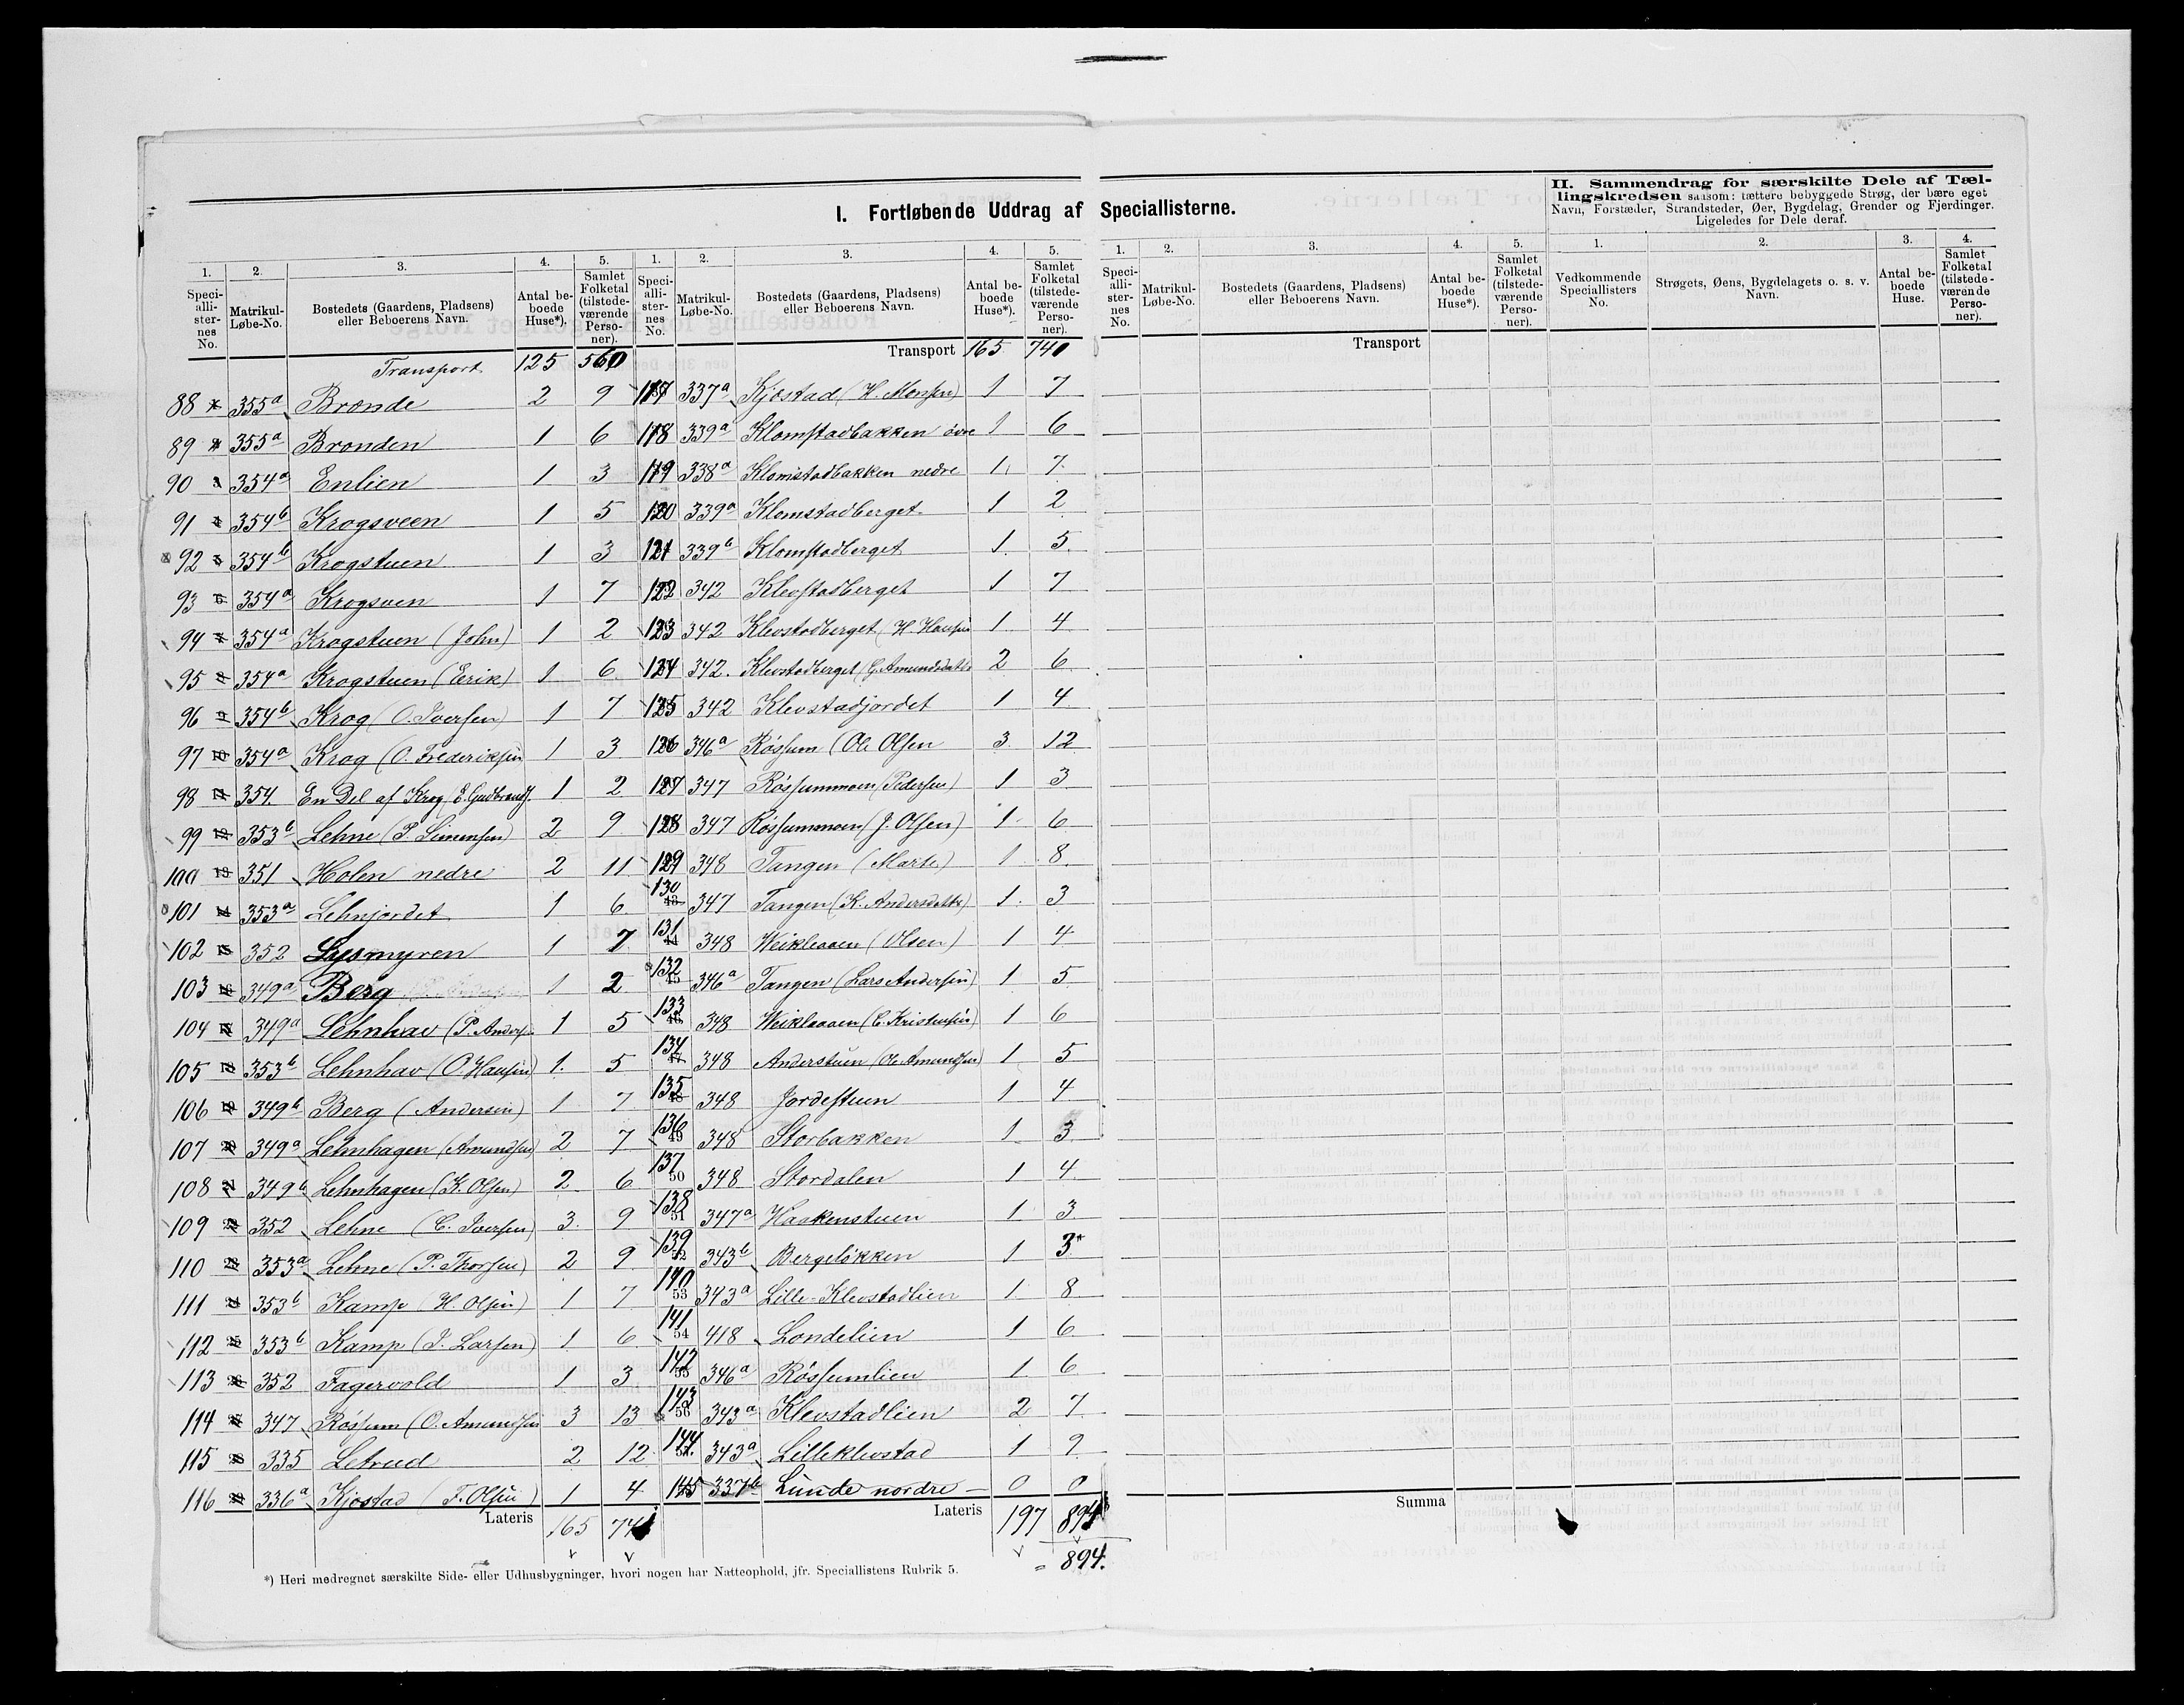 I. Fortløbende Uddrag af Speciallisterne.
II. Sammendrag for særskilte Dele af Tæl-
lingskredsen saasom: tættere bebyggede Strøg, der bære eget
Navn, Forstæder, Strandsteder, Øer, Bygdelag, Grender og Fjerdinger.
Ligeledes for Dele deraf.
1. 2. 3. 4. 5.
Speci-alli-ster-nes No. Matrikul-Løbe-No. Bostedets (Gaardens, Pladsens) eller Beboerens Navn. Antal be-boede Huse*). Samlet Folketal (tilstede-værende Perso-ner).
Transport 125 560
88 355a Brønde 2 9
89 355a Brønden 1 6
90 354a Enlien 1 3
91 354b Krogsveen 1 5
92 354b Krogstuen 1 3
93 354a Krogsven 1 7
94 354a Krogstuen (John) 1 2
95 354a Krogstuen (Erik) 1 6
96 354b Krog (O. Iversen) 1 7
97 354a Krog (O. Frederiksen 1 3
98 354. En Del af Krog (E. Gudbrands. 1 2
99 353b Lehne (P. Simensen) 2 9
100 351 Holen nedre 2 11
101 353a Lehnjordet 1 6
102 352 Lysmyren 1 7
103 349a Berg 1 2
104 349a Lehnhav (P. Anders. 1 5
105 353b Lehnhav (O. Hansen) 1. 5
106 349b Berg (Andersen) 1 7
107 349a Lehnhagen (Amundsen) 2 7
108 349b Lehnhagen (K. Olsen) 2 6
109 352 Lehne (C. Iversen) 3. 9
110 353a Lehne (P. Thorsen) 2 9
111 353b Kamp (H. Olsen) 1 7
112 353b Kamp (I. Larsen) 1 6
113 352 Fagervold 1 3
114 347 Røssum (O. Amundsen 3 13
115 335 Letrud 2 12
116 336a Kjøstad (T. Olsen) 1 4
Lateris 165 74
1. 2. 3. 4. 5.
Speci-alli-ster-nes No. Matrikul-Løbe-No. Bostedets (Gaardens, Pladsens) eller Beboerens Navn. Antal be-boede Huse*). Samlet Folketal (tilstede-værende Perso-ner).
Transport 165 740
117 337a Kjøstad (H. Monsen) 1 7
118 339a Klomstadbakken övre 1 6
119 338a Klomstadbakken nedre 1 7
120 339a Klomstadberget 1 2
121 339b Klomstadberget 1 5
122 342 Klevstadberget 1 7
123 342 Klevstadberget (H. Hansen 1 4
124 342. Klevstadberget (G. Amundsdatter 2 6
125 342 Klevstadjordet 1 4
126 346a Røssum (Ole Olsen 3. 12
127 347 Røssummoen (Pedersen) 1 3
128 347 Røssummoen (J. Olsen) 1 6
129 348 Tangen (Marte) 1 8
130 347 Tangen (K. Andersdatter) 1 3
131 348 Weikleaaen (Olsen) 1 4
132 346a Tangen (Lars Andersen) 1 5
133 348 Weikleaaen (C. Kristensen) 1 6
134 348 Anderstuen (Ole Amundsen) 1 5
135 348 Jordestuen 1 4
136 49 348 Storbakken 1 3
137 50 348 Stordalen 1 4
138 51 347a Haakenstuen 1 3
139 52 343b Bergeløkken 1 3*
140 53 343a Lille-Klevstadlien 1 8
141 54 418 Londelien 1 6
142 55 346a Røssumlien 1 6
143 56 343a Klevstadlien 2 7
144 343a Lilleklevstad 1 9
145 337b Lunde nordre 0 0
Lateris 197 894
= 894.
1. 2. 3. 4. 5.
Speci-alli-ster-nes No. Matrikul-Løbe-No. Bostedets (Gaardens, Pladsens) eller Beboerens Navn. Antal be-boede Huse*). Samlet Folketal (tilstede-værende Perso-ner).
Transport
Summa
1. 2. 3. 4.
Vedkommende Speciallisters No. Strøgets, Øens, Bygdelagets o. s. v. Navn. Antal be-boede Huse. Samlet Folketal (tilstede-værende Perso-ner).
*) Heri medregnet særskilte Side- eller Udhusbygninger, hvori nogen har Natteophold, jfr. Speciallistens Rubrik 5.